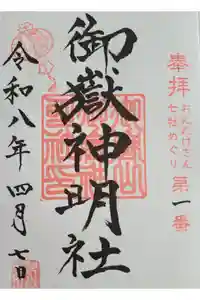 奉拝
おんたけさん
七社めぐり
第一番
御嶽神明社
令和八年四月七日